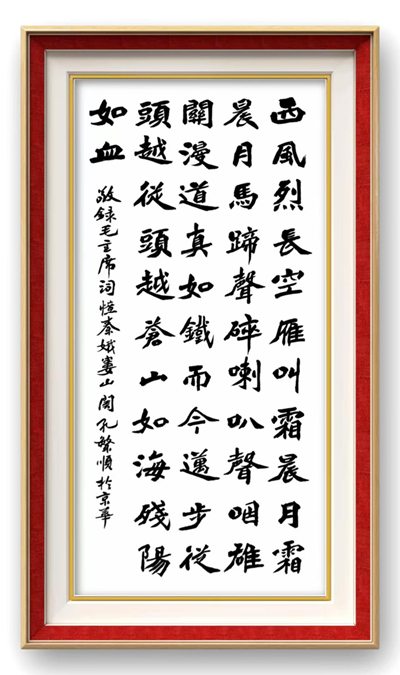 西風烈長空雁叫霜晨月霜
晨月馬蹄聲碎喇叭聲咽雄
關漫道真如鐵而今邁步從
頭越從頭越蒼山如海殘陽
如血
敬錄毛主席詞憶秦娥婁山關孔繁順於京華